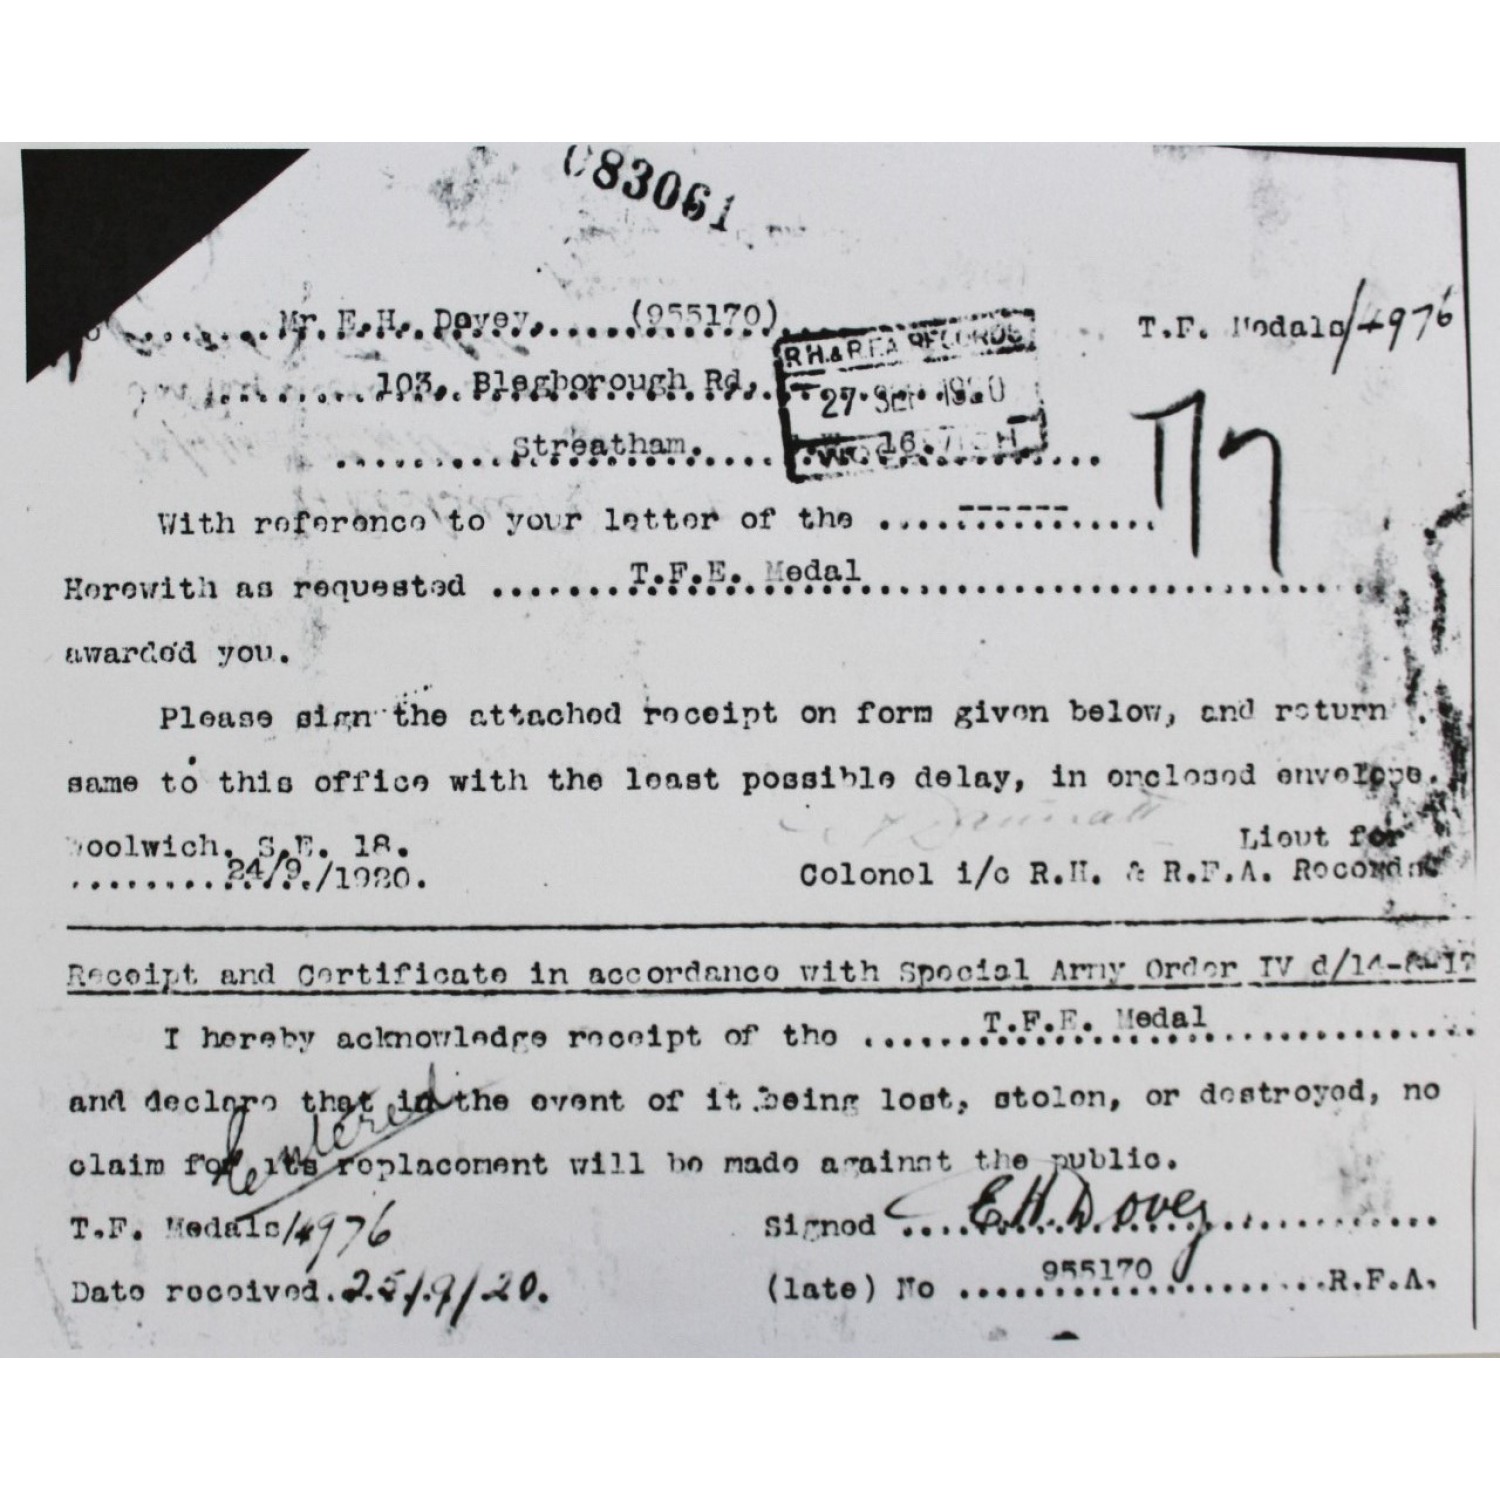 083061
Mr. E.H. Dovey, (955170)
T.F. Medals/4976
103, Blegborough Rd,
Streatham. S.W. 16.
R.H.& R.F.A RECORDS
27 SEP 1920
WOOLWICH
With reference to your letter of the ------
Herewith as requested T.F.E. Medal
awarded you.
Please sign the attached receipt on form given below, and return
same to this office with the least possible delay, in enclosed envelope.
Woolwich. S.E. 18.
Lieut for
24/9/1920.
Colonel i/c R.H. & R.F.A. Records.
Receipt and Certificate in accordance with Special Army Order IV d/14-8-17
I hereby acknowledge receipt of the T.F.E. Medal
and declare that in the event of it being lost, stolen, or destroyed, no
claim for its replacement will be made against the public.
T.F. Medals/4976
Signed E.H.Dovey
Date received. 25/9/20.
(late) No 955170 R.F.A.